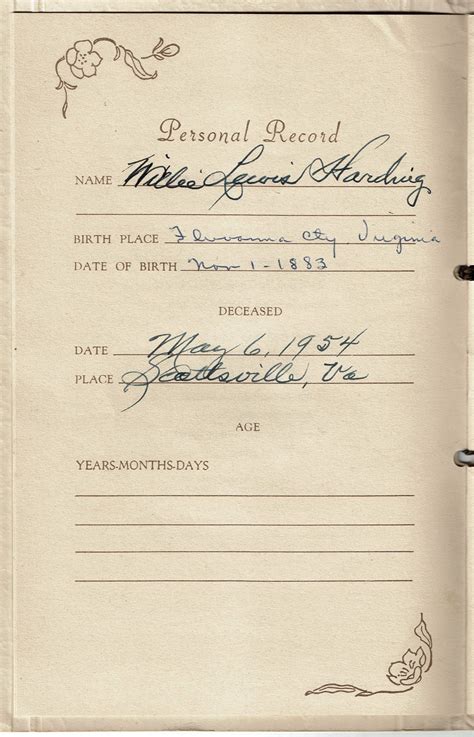 Personal Record
NAME Willie Lewis Harding
BIRTH PLACE Fluvanna Cty, Virginia
DATE OF BIRTH Nov 1 - 1883
DECEASED
DATE May 6, 1954
PLACE Scottsville, Va
AGE
YEARS-MONTHS-DAYS